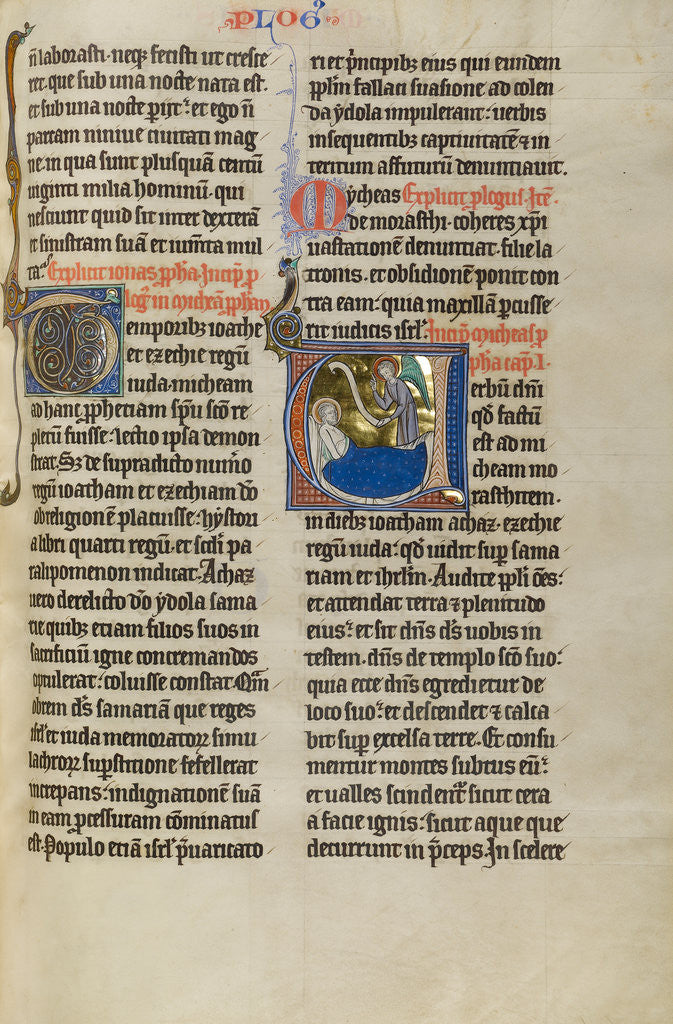 PLOG᷒
n̄ laborasti· neq; fecisti ut cresce
ret· que sub una nocte nata est·
et sub una nocte perijt: et ego n̄
parcam niniue ciuitati mag
ne· in qua sunt plusquā centū
uiginti milia hominū· qui
nesciunt quid sit inter dexterā
et sinistram suā et iumēta mul
ta· Explicit ionas ꝓpha· Incip̄ p̄
loḡ in micheā ꝓphāꝫ
Temporibꝫ ioathe
et ezechie regū
iuda· micheam
ad hanc ꝓphetiam sp̄u sc̄o re
pletū fuisse: lectio ipsa demon
strat· Sꝫ de supradicto nūo
regū ioatham et ezechiam dō
ob religionē placuisse: hystori
a libri quarti regū· et sc̄di pa
ralipomenon indicat· Achaz
uero derelicto dō ydola sama
rie quibꝫ etiam filios suos in
sacrificiū igne concremandos
optulerat: coluisse constat· Qm̄
obrem ds̄ samariā que reges
isrl̄ et iuda memoratoꝝ simu
lachroꝝ suꝑstitione fefellerat
increpans: indignationē suā
in eam ꝓcessuram cōminatus
est· Populo etiā isrl̄ p̄uaricato
ri et p̄ncipibꝫ eius qui eundem
ppl̄m fallaci suasione ad colen
da ydola impulerant: uerbis
insequentibꝫ captiuitatē ⁊ in
teritum affuturū denuntiauit·
Mycheas Explicit ꝓlogus· Itē·
de morasthi· coheres xp̄i
uastationē denuntiat· filie la
tronis· et obsidionem ponit con
tra eam· quia maxillā ꝑcusse
rit iudicis isrl̄· Incip̄ micheas ꝓ
pha cap̄· I·
Uerbū dn̄i
qd̄ factū
est ad mi
cheam mo
rasthitem·
in diebꝫ ioatham achaz· ezechie
regū iuda: qd̄ uidit suꝑ sama
riam et ihrl̄m· Audite ppl̄i ōes:
et attendat terra ⁊ plenitudo
eius: et sit dn̄s ds̄ uobis in
testem· dn̄s de templo sc̄o suo:
quia ecce dn̄s egredietur de
loco suo: et descendet ⁊ calca
bit suꝑ excelsa terre· Et consu
mentur montes subtus eū:
et ualles scindentr̄ sicut cera
a facie ignis: sicut aque que
decurrunt in p̄ceps· In scelere